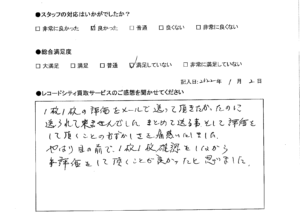 ●スタッフの対応はいかがでしたか？
□非常に良かった ☑良かった □普通 □良くない □非常に良くない
●総合満足度
□大満足 □満足 □普通 ☑満足していない □非常に満足していない
記入日:2022年 1月 2日
●レコードシティ買取サービスのご感想を聞かせてください
1枚1枚の評価をメールで送って頂きたかったのに
送られて来ませんでした まとめて送る事として評価を
して頂くことのむずかしさを痛感いたしました
やはり目の前で、1枚1枚確認をしながら
評価をして頂くことが良かったと思いました